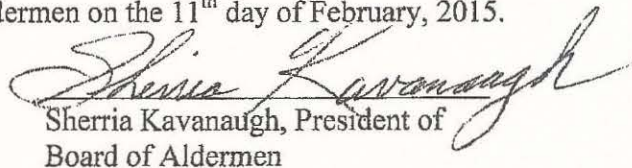 ldermen on the 11th day of February, 2015.
Sherria Kavanaugh
Sherria Kavanaugh, President of
Board of Aldermen